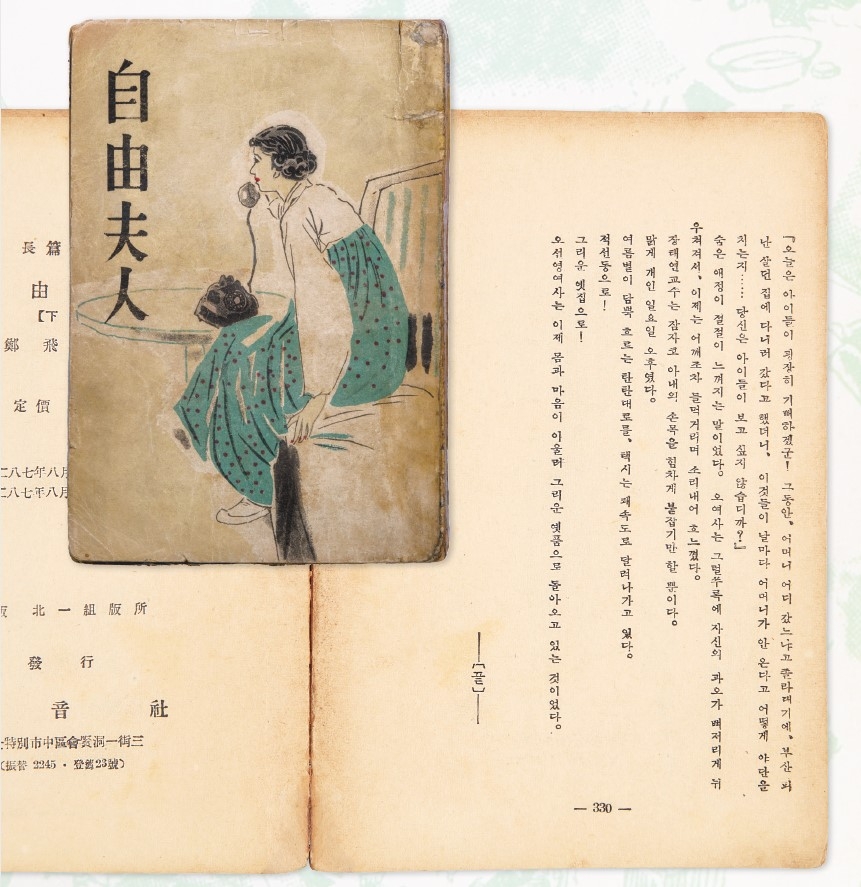 自由夫人
『오늘은 아이들이 굉장히 기뻐하겠군! 그동안, 어머니 어디 갔느냐고 졸라대기에, 부산 피
난 살던 집에 다니러 갔다고 했더니, 이것들이 날마다 어머니가 안 온다고 어떻게 야단을
치는지…… 당신은 아이들이 보고 싶지 않습디까?』
숨은 애정이 절절이 느껴지는 말이었다. 오여사는 그럴쑤록에 자신의 과오가 뼈저리게 뉘
우쳐져서, 이제는 어깨조차 들먹거리며 소리내어 흐느꼈다.
장태연교수는 잠자코 아내의 손목을 힘차게 붙잡기만 할 뿐이다.
맑게 개인 일요일 오후였다.
여름볕이 담뿍 흐르는 탄탄대로를, 택시는 쾌속도로 달려나가고 있다.
적선동으로!
그리운 옛집으로!
오선영여사는 이제 몸과 마음이 아울러 그리운 옛품으로 돌아오고 있는 것이었다.
—[끝]—
— 330 —
長篇
由
【下
鄭 飛
定價
二八七年八月
二八七年八月
北一組版所
發行
音社
特別市中區會賢洞一街三
(振替 2245 · 登錄23號)